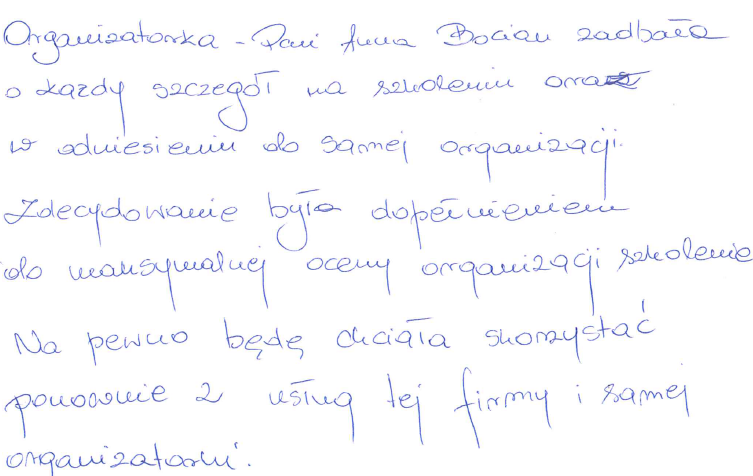 Organizatorka - Pani Anna Bocian zadbała
o każdy szczegół na szkoleniu oraz
w odniesieniu do samej organizacji.
Zdecydowanie była dopełnieniem
do maksymalnej oceny organizacji szkolenie
Na pewno będę chciała skorzystać
ponownie z usług tej firmy i samej
organizatorki.